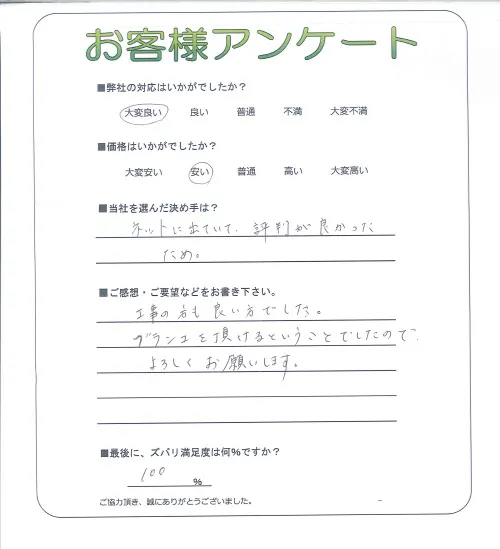 お客様アンケート
■弊社の対応はいかがでしたか？
大変良い 良い 普通 不満 大変不満
■価格はいかがでしたか？
大変安い 安い 普通 高い 大変高い
■当社を選んだ決め手は？
ネットに出ていて、評判が良かった
ため。
■ご感想・ご要望などをお書き下さい。
工事の方も良い方でした。
グラシユを頂けるということでしたので、
よろしくお願いします。
■最後に、ズバリ満足度は何％ですか？
100 ％
ご協力頂き、誠にありがとうございました。